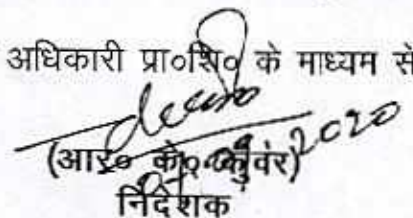 अधिकारी प्रा०शि० के माध्यम से
2020
(आर० के० कुंवर)
निदेशक